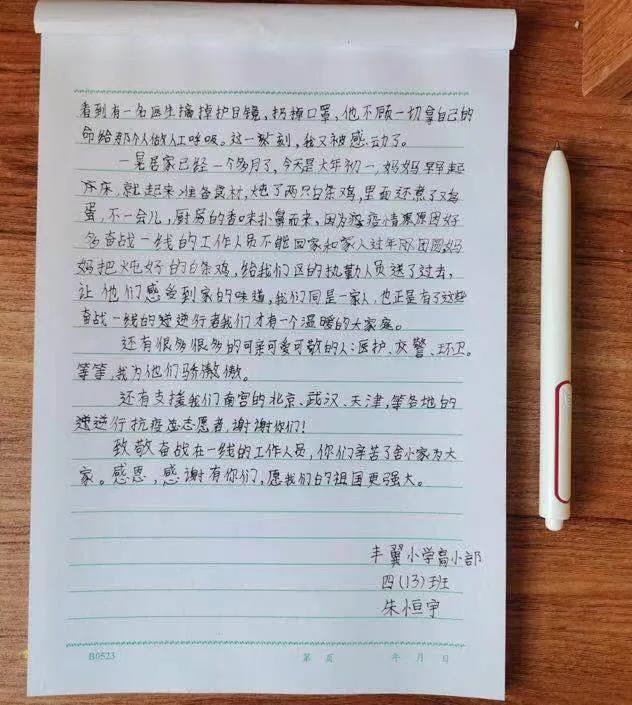 看到有一名医生摘掉护目镜、扔掉口罩、他不顾一切拿自己的
命给那个人做人工呼吸。这一刻，我又被感动了。
一晃居家已经一个多月了，今天是大年初一，妈妈早早起
床，就起来准备食材，炖了两只白条鸡，里面还煮了鸡
蛋，不一会儿，厨房的香味扑鼻而来，因为疫情原因好
多奋战一线的工作人员不能回家和家人过年团圆，妈
妈把炖好的白条鸡，给我们区的执勤人员送了过去，
让他们感受到家的味道，我们同是一家人，也正是有了这些
奋战一线的逆行者我们才有一个温暖的大家庭。
还有很多很多的可亲可爱可敬的人：医护、交警、环卫。
等等，我为他们骄傲。
还有支援我们南宫的北京、武汉、天津，等各地的
逆行抗疫志愿者，谢谢你们！
致敬奋战在一线的工作人员，你们辛苦了舍小家为大
家。感恩，感谢有你们，愿我们的祖国更强大。
丰翼小学高小部
四（13）班
朱恒宇
B0523 第 页 年 月 日